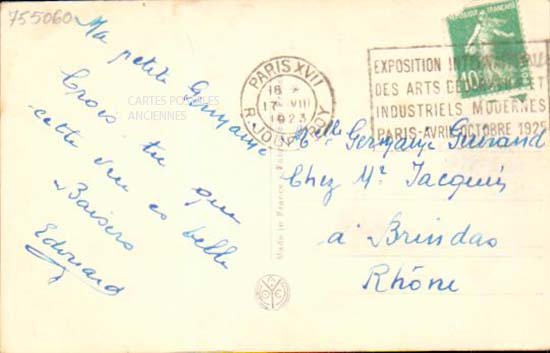 755060
Ma petite Germaine
Crois tu que
cette vue es belle
Baisers
Edouard
CARTES POSTALES
ANCIENNES
PARIS XVII
18
17 VIII
1923
R. JOUFFROY
REPUBLIQUE FRANÇAISE
10
EXPOSITION INTERNATIONALE
DES ARTS DÉCORATIFS ET
INDUSTRIELS MODERNES
PARIS-AVRIL-OCTOBRE 1925
Melle Germaine
Chez Mr Jacquin
a Brindas
Rhône
Made in France